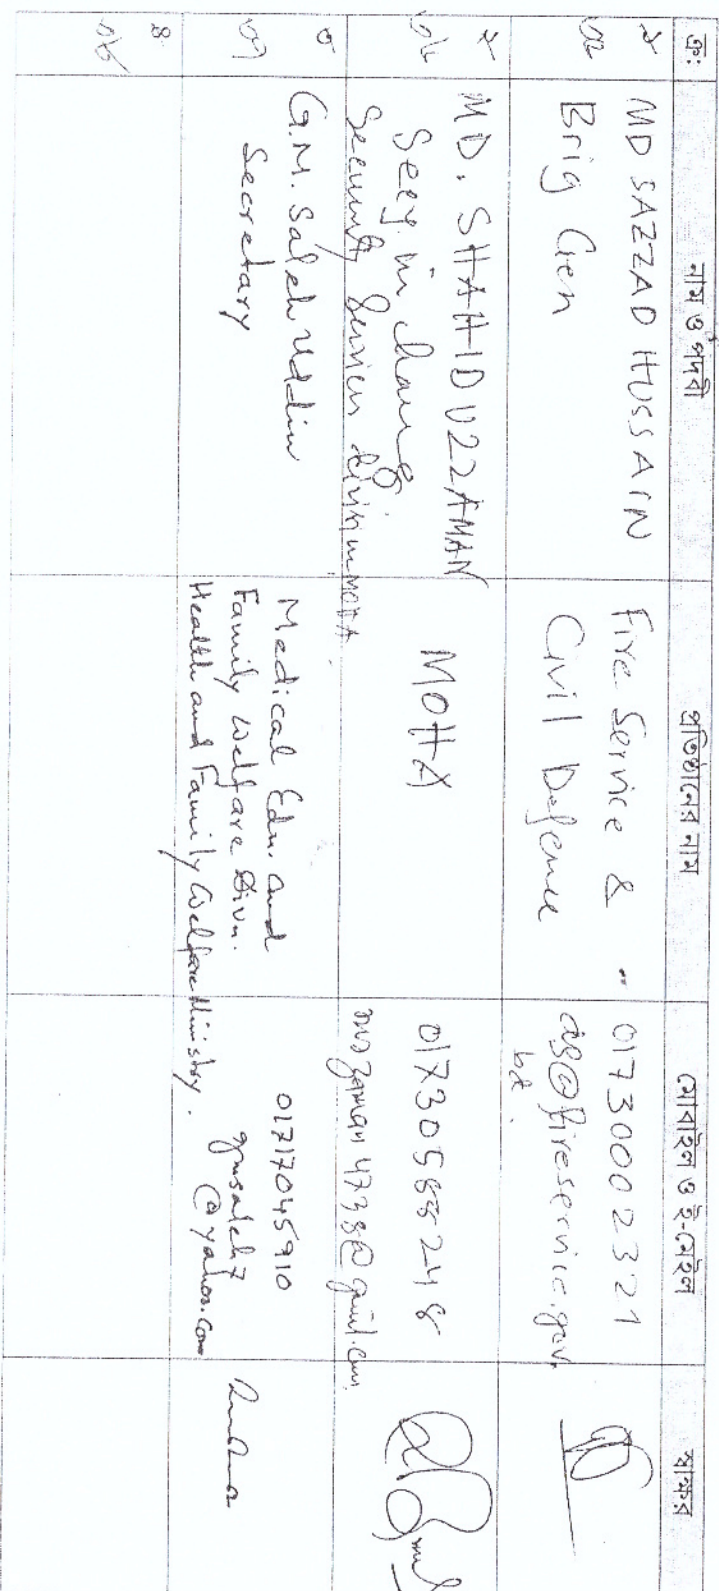 ক্র: নাম ও পদবী প্রতিষ্ঠানের নাম মোবাইল ও ই-মেইল স্বাক্ষর
MD SAZZAD HUSSAIN
Brig Gen
Fire Service &
Civil Defence
01730002321
dg@fireservice.gov.
bd.
MD. SHAHIDUZZAMAN
Secy. in charge
Security Services division MOHA
MOHA
gmail.com
৩
G.M. Saleh uddin
Secretary
Medical Edu. and
Family Welfare Divn.
Health and Family Welfare Ministry.
01717045910
gmsaleh7
@yahoo.com
৪